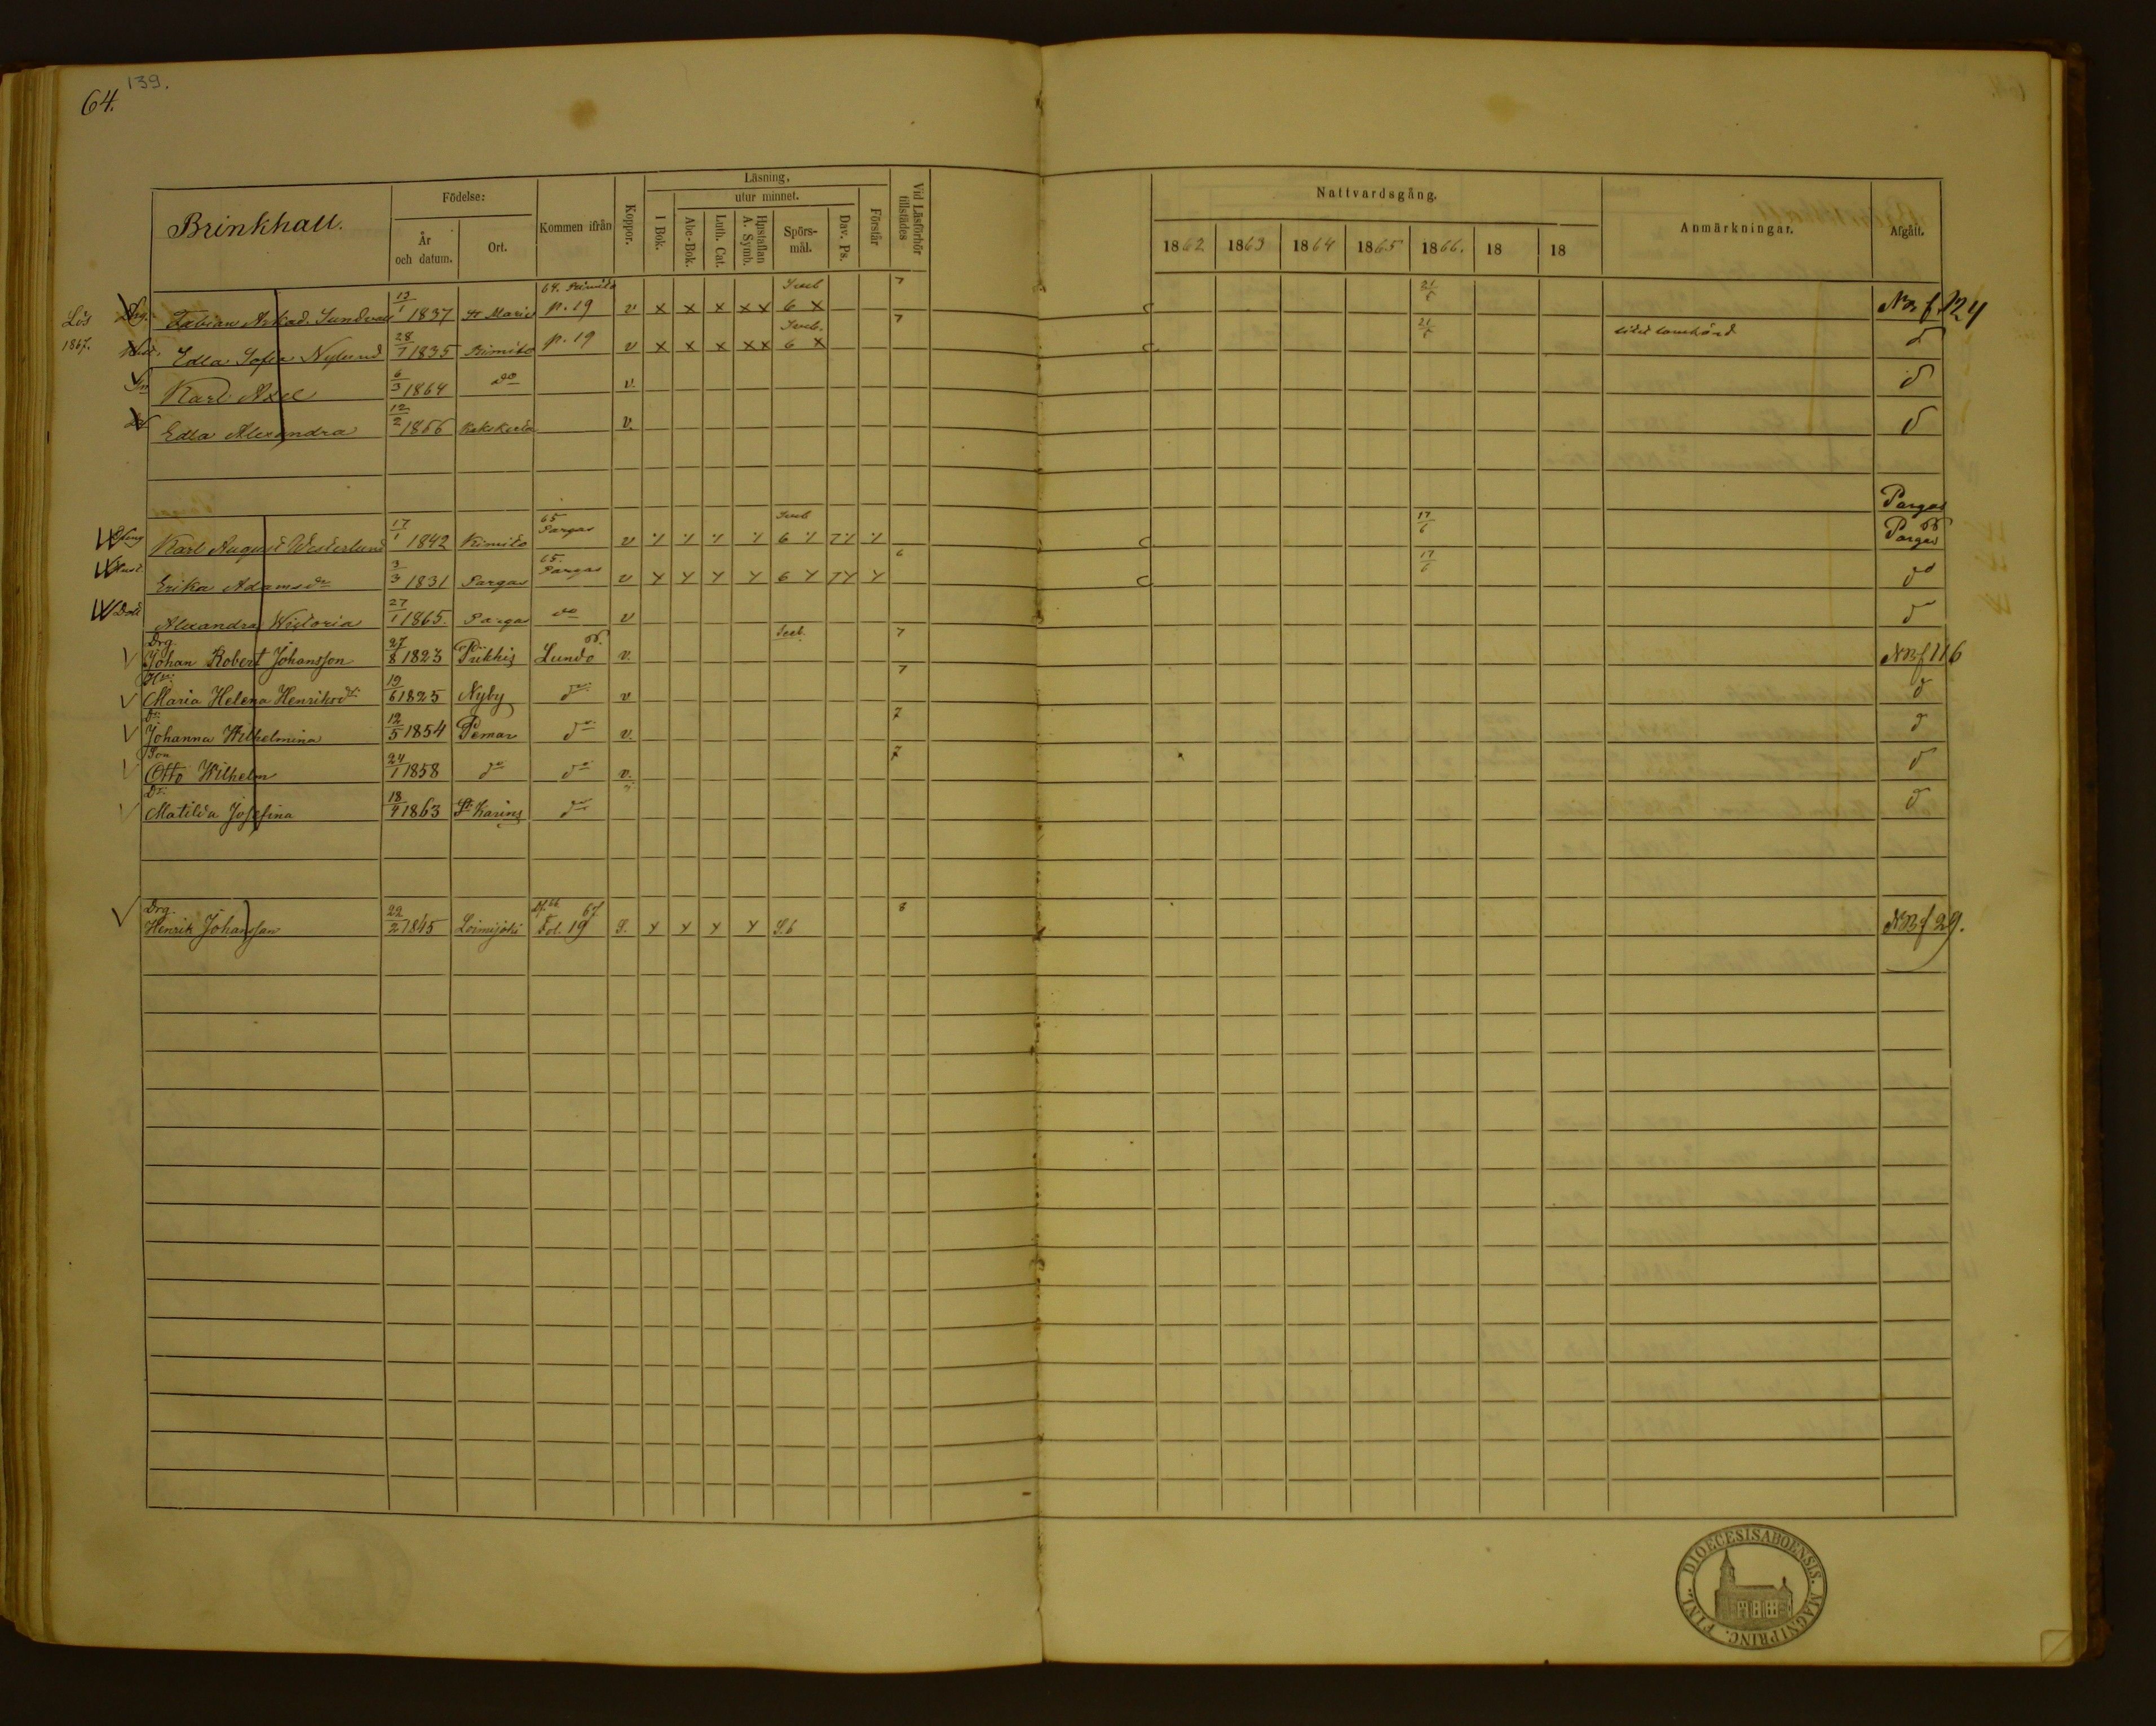 139.
64.
Brinkhall.
Födelse:
År och datum.
Ort.
Kommen ifrån
Koppor.
Läsning,
I Bok.
utur minnet.
Abc-Bok.
Luth. Cat.
Hustaflan A. Symb.
Spörs-mål.
Dav. Ps.
Förstår
Vid Läsförhör tillstädes
Nattvardsgång.
1862 1863 1864 1865 1866. 18 18
Anmärkningar.
Afgått.
Lös Drg. Fabian Arkad. Sundvall 13/1 1837 St Marie 64. Kimito p. 19 v x x x x x Sveb 6 x 7 NB. f. 124
1867. Edla Sofia Nylund 28/7 1835 Kimito p. 19 v x x x x x Sveb. 6 x 7 lomhörd d
Karl Axel 6/3 1864 do v. d
Edla Alexandra 12/2 1866 Kakskerta v. d
Pargas
Karl August Westerlund 17/1 1842 Kimito 65 Pargas v Sveb 6 17/6 Pargas
Hust. Erika Adamsdr 3/3 1831 Pargas 65. Pargas v 6 6 17/6 do
Dott Alexandra Wictoria 27/1 1865. Pargas do v d
Drg. Johan Robert Johansson 27/8 1823 Piikkis Lundo v. Sveb. 7 NB f 116
Maria Helena Henriksdr 19/6 1825 Nyby do v 7 d
Dr. Johanna Wilhelmina 12/5 1854 Pemar do v. 7 d
Son Otto Wilhelm 24/1 1858 do do v. 7 d
Dr. Matilda Josefina 18/9 1863 St. Karins do d
Drg. Henrik Johansson 22/2 1845 Loimijoki Fol. 19 67 S. S.6 8 NB f 29.
DIOECESIS ABOENSIS. MAGNI PRINC. FINL.